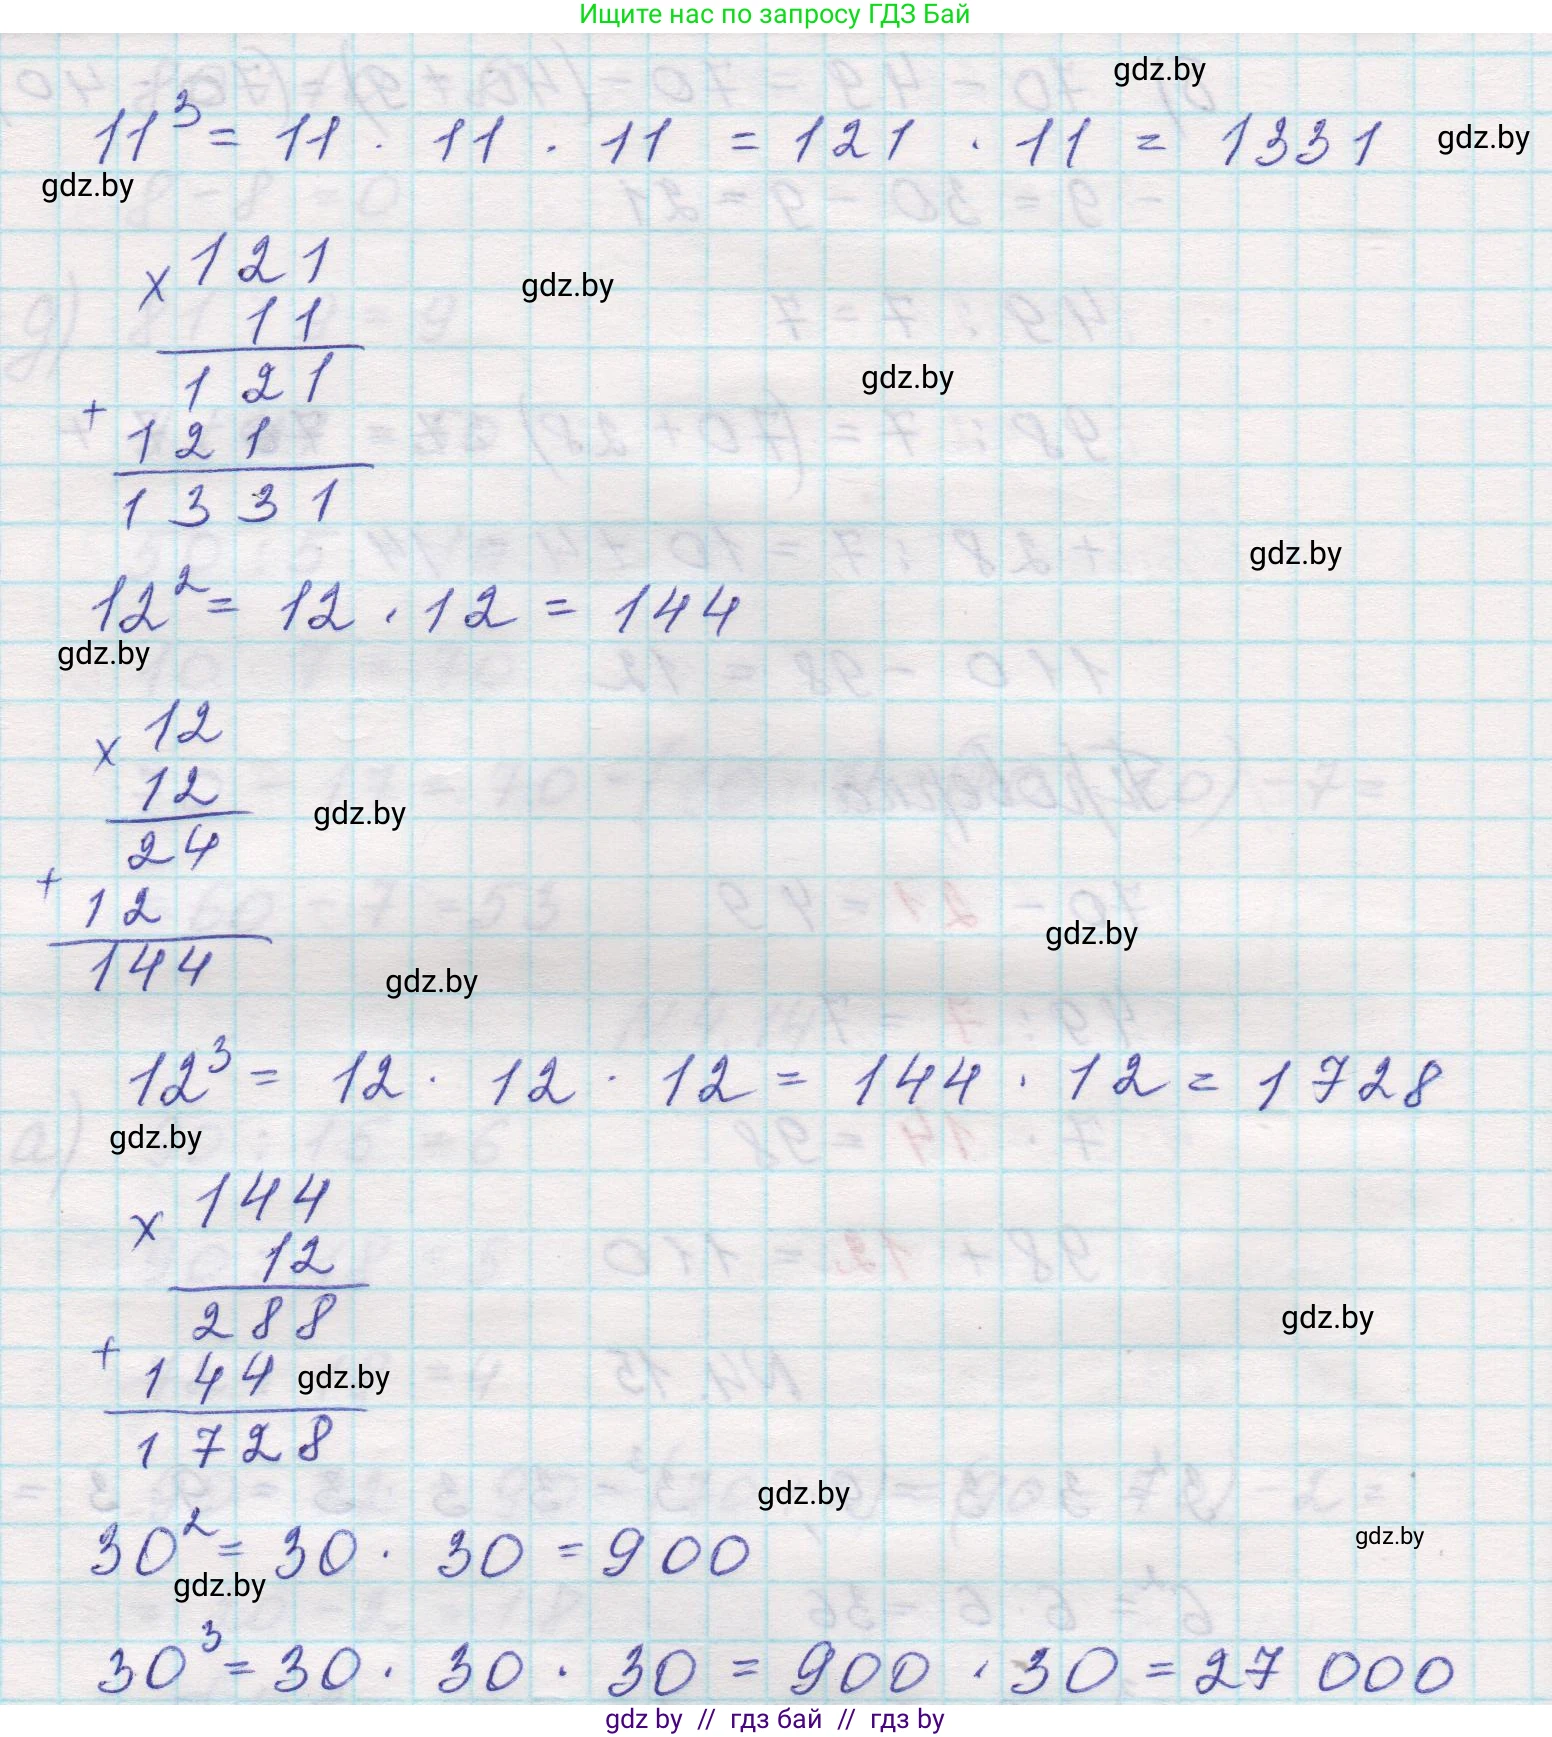 Ищите нас по запросу ГДЗ Бай
gdz.by
11³ = 11 · 11 · 11 = 121 · 11 = 1331
gdz.by
gdz.by
x 121
gdz.by
11
121
gdz.by
+ 121
1331
gdz.by
12² = 12 · 12 = 144
gdz.by
x 12
12
gdz.by
24
+ 12
gdz.by
144
gdz.by
12³ = 12 · 12 · 12 = 144 · 12 = 1728
gdz.by
x 144
12
288
gdz.by
+ 144
gdz.by
1728
gdz.by
30² = 30 · 30 = 900
gdz.by
gdz.by
30³ = 30 · 30 · 30 = 900 · 30 = 27 000
gdz by // гдз бай // гдз by